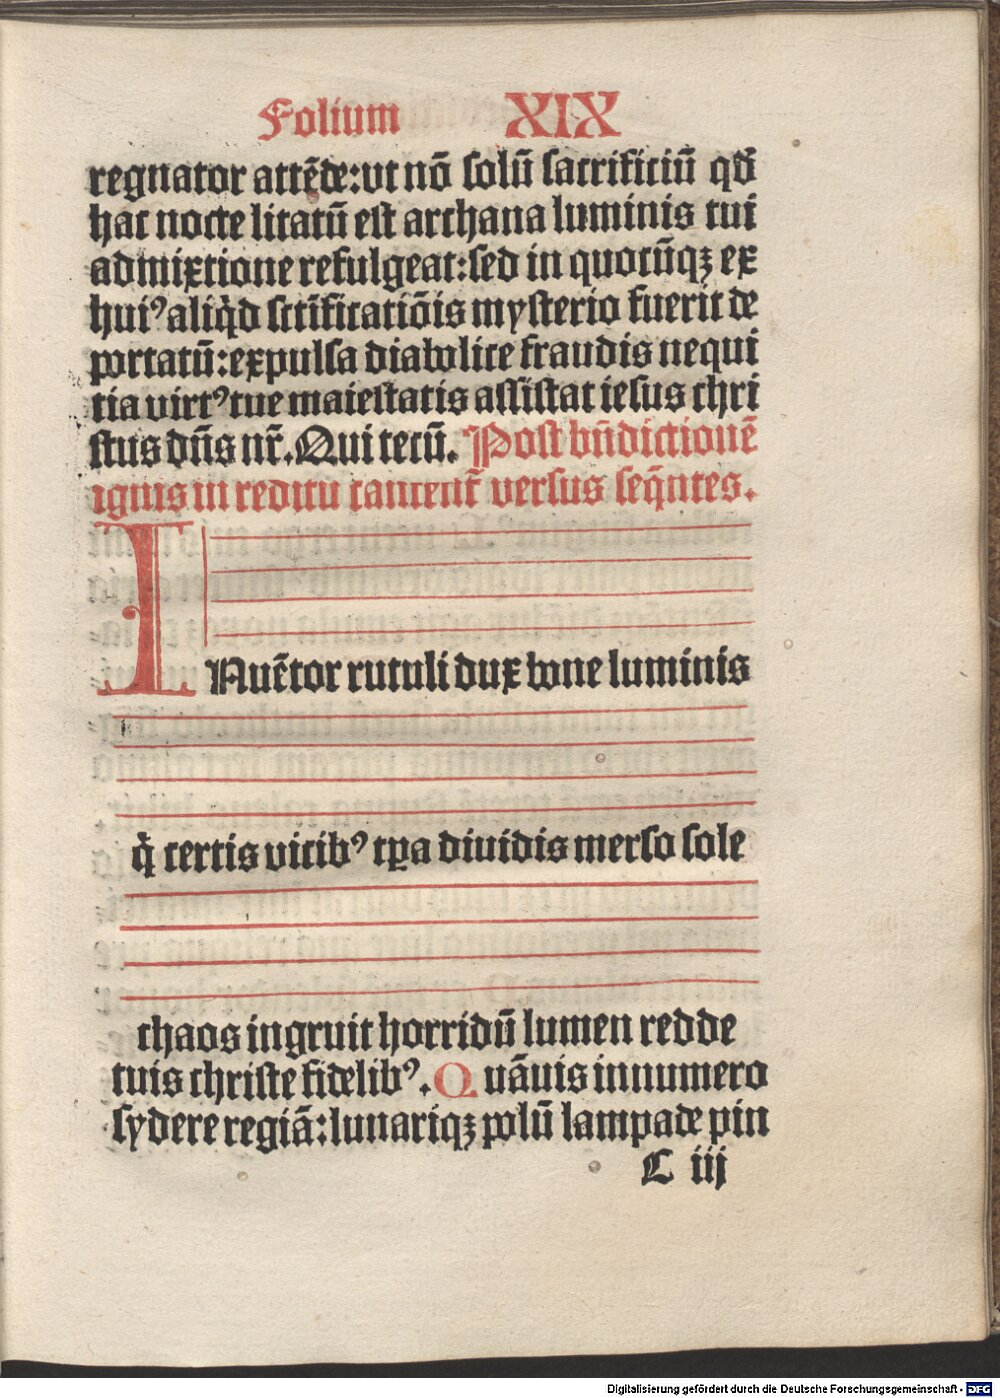 Folium XIX
regnator attēde:vt nō solū sacrificiū qđ
hac nocte litatū est archana luminis tui
admixtione refulgeat:sed in quocūqꝫ ex
huiꝰ aliq̇d sct̄ificatiōis mysterio fuerit de
portatū:expulsa diabolice fraudis nequi
tia virtꝰ tue maiestatis assistat iesus chri
stus dn̄s nr̄. Qui tecū. Post bn̄dictionē
ignis in reditu cantent̄ versus seq̄ntes.
INuētor rutuli dux bone luminis
q̇ certis vicibꝰ tꝑa diuidis merso sole
chaos ingruit horridū lumen redde
tuis christe fidelibꝰ. Quāuis innumero
sydere regiā:lunariqꝫ polū lampade pin
C iij
Digitalisierung gefördert durch die Deutsche Forschungsgemeinschaft - DFG